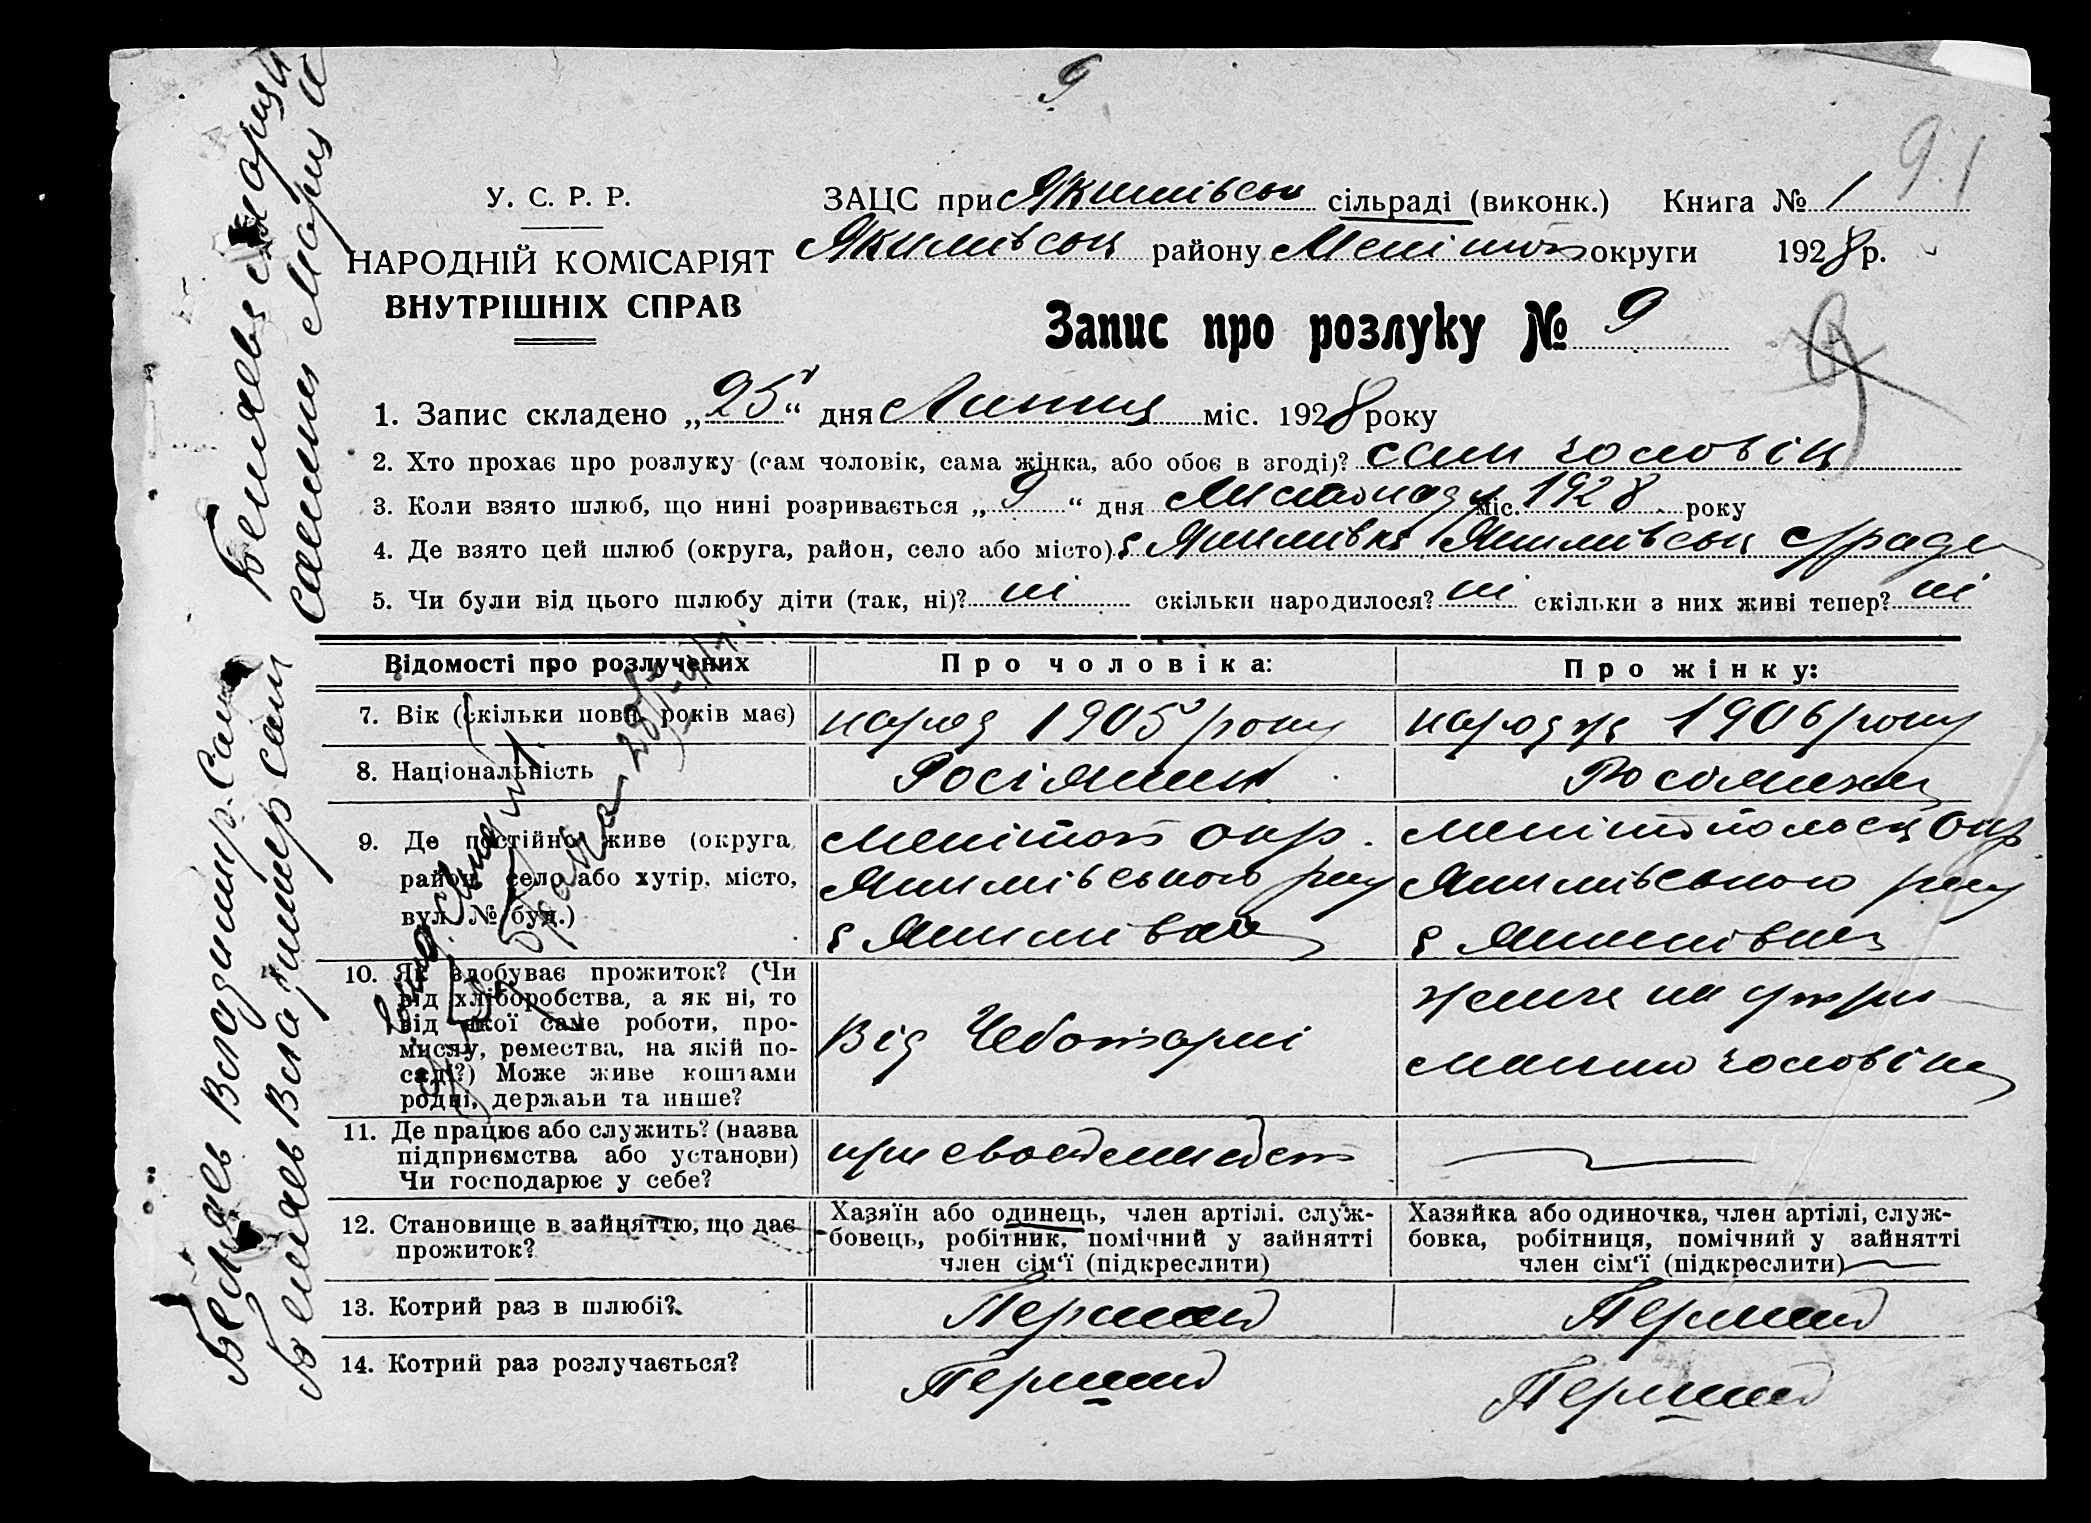 9
91
У. С. Р. Р.
НАРОДНІЙ КОМІСАРІЯТ
ВНУТРІШНІХ СПРАВ
ЗАЦС при Якимівськ сільраді (виконк.) Книга № 1
Якимівськ району Меліт округи 1928 р.
Запис про розлуку № 9
1. Запис складено „25“ дня Липня міс. 1928 року
2. Хто прохає про розлуку (сам чоловік, сама жінка, або обоє в згоді)? сам чоловік
3. Коли взято шлюб, що нині розривається „9“ дня Листопада міс. 1928 року
4. Де взято цей шлюб (округа, район, село або місто) с Якимівка Якимівськ с/раде
5. Чи були від цього шлюбу діти (так, ні)? ні скільки народилося? ні скільки з них живі тепер? ні
Відомості про розлучених
Про чоловіка:
Про жінку:
7. Вік (скільки повн. років має)
народ 1905 року
народж 1906 року
8. Національність
Росіянин
Росіянка
9. Де постійно живе (округа,
район, село або хутір, місто,
вул. № буд.)
Меліт окр.
Якимівського рну
с Якимівка
Мелітопольськ Окр.
Якимівського рну
с Якимівка
10. Як здобуває прожиток? (Чи
від хліборобства, а як ні, то
від якої саме роботи, про-
мислу, ремества, на якій по-
саді?) Може живе коштами
родні, держави та инше?
Від Чеботарні
на утри
манню чоловіка
11. Де працює або служить? (назва
підприємства або установи)
Чи господарює у себе?
при
12. Становище в зайняттю, що дає
прожиток?
Хазяїн або одинець, член артілі. служ-
бовець, робітник, помічний у зайнятті
член сім‘ї (підкреслити)
Хазяйка або одиночка, член артілі, служ-
бовка, робітниця, помічний у зайнятті
член сім‘ї (підкреслити)
13. Котрий раз в шлюбі?
Перший
Перший
14. Котрий раз розлучається?
Перший
Перший
Беляев Володимир Сам
Беляев Владимер Сам
Беляева Мория
Мория